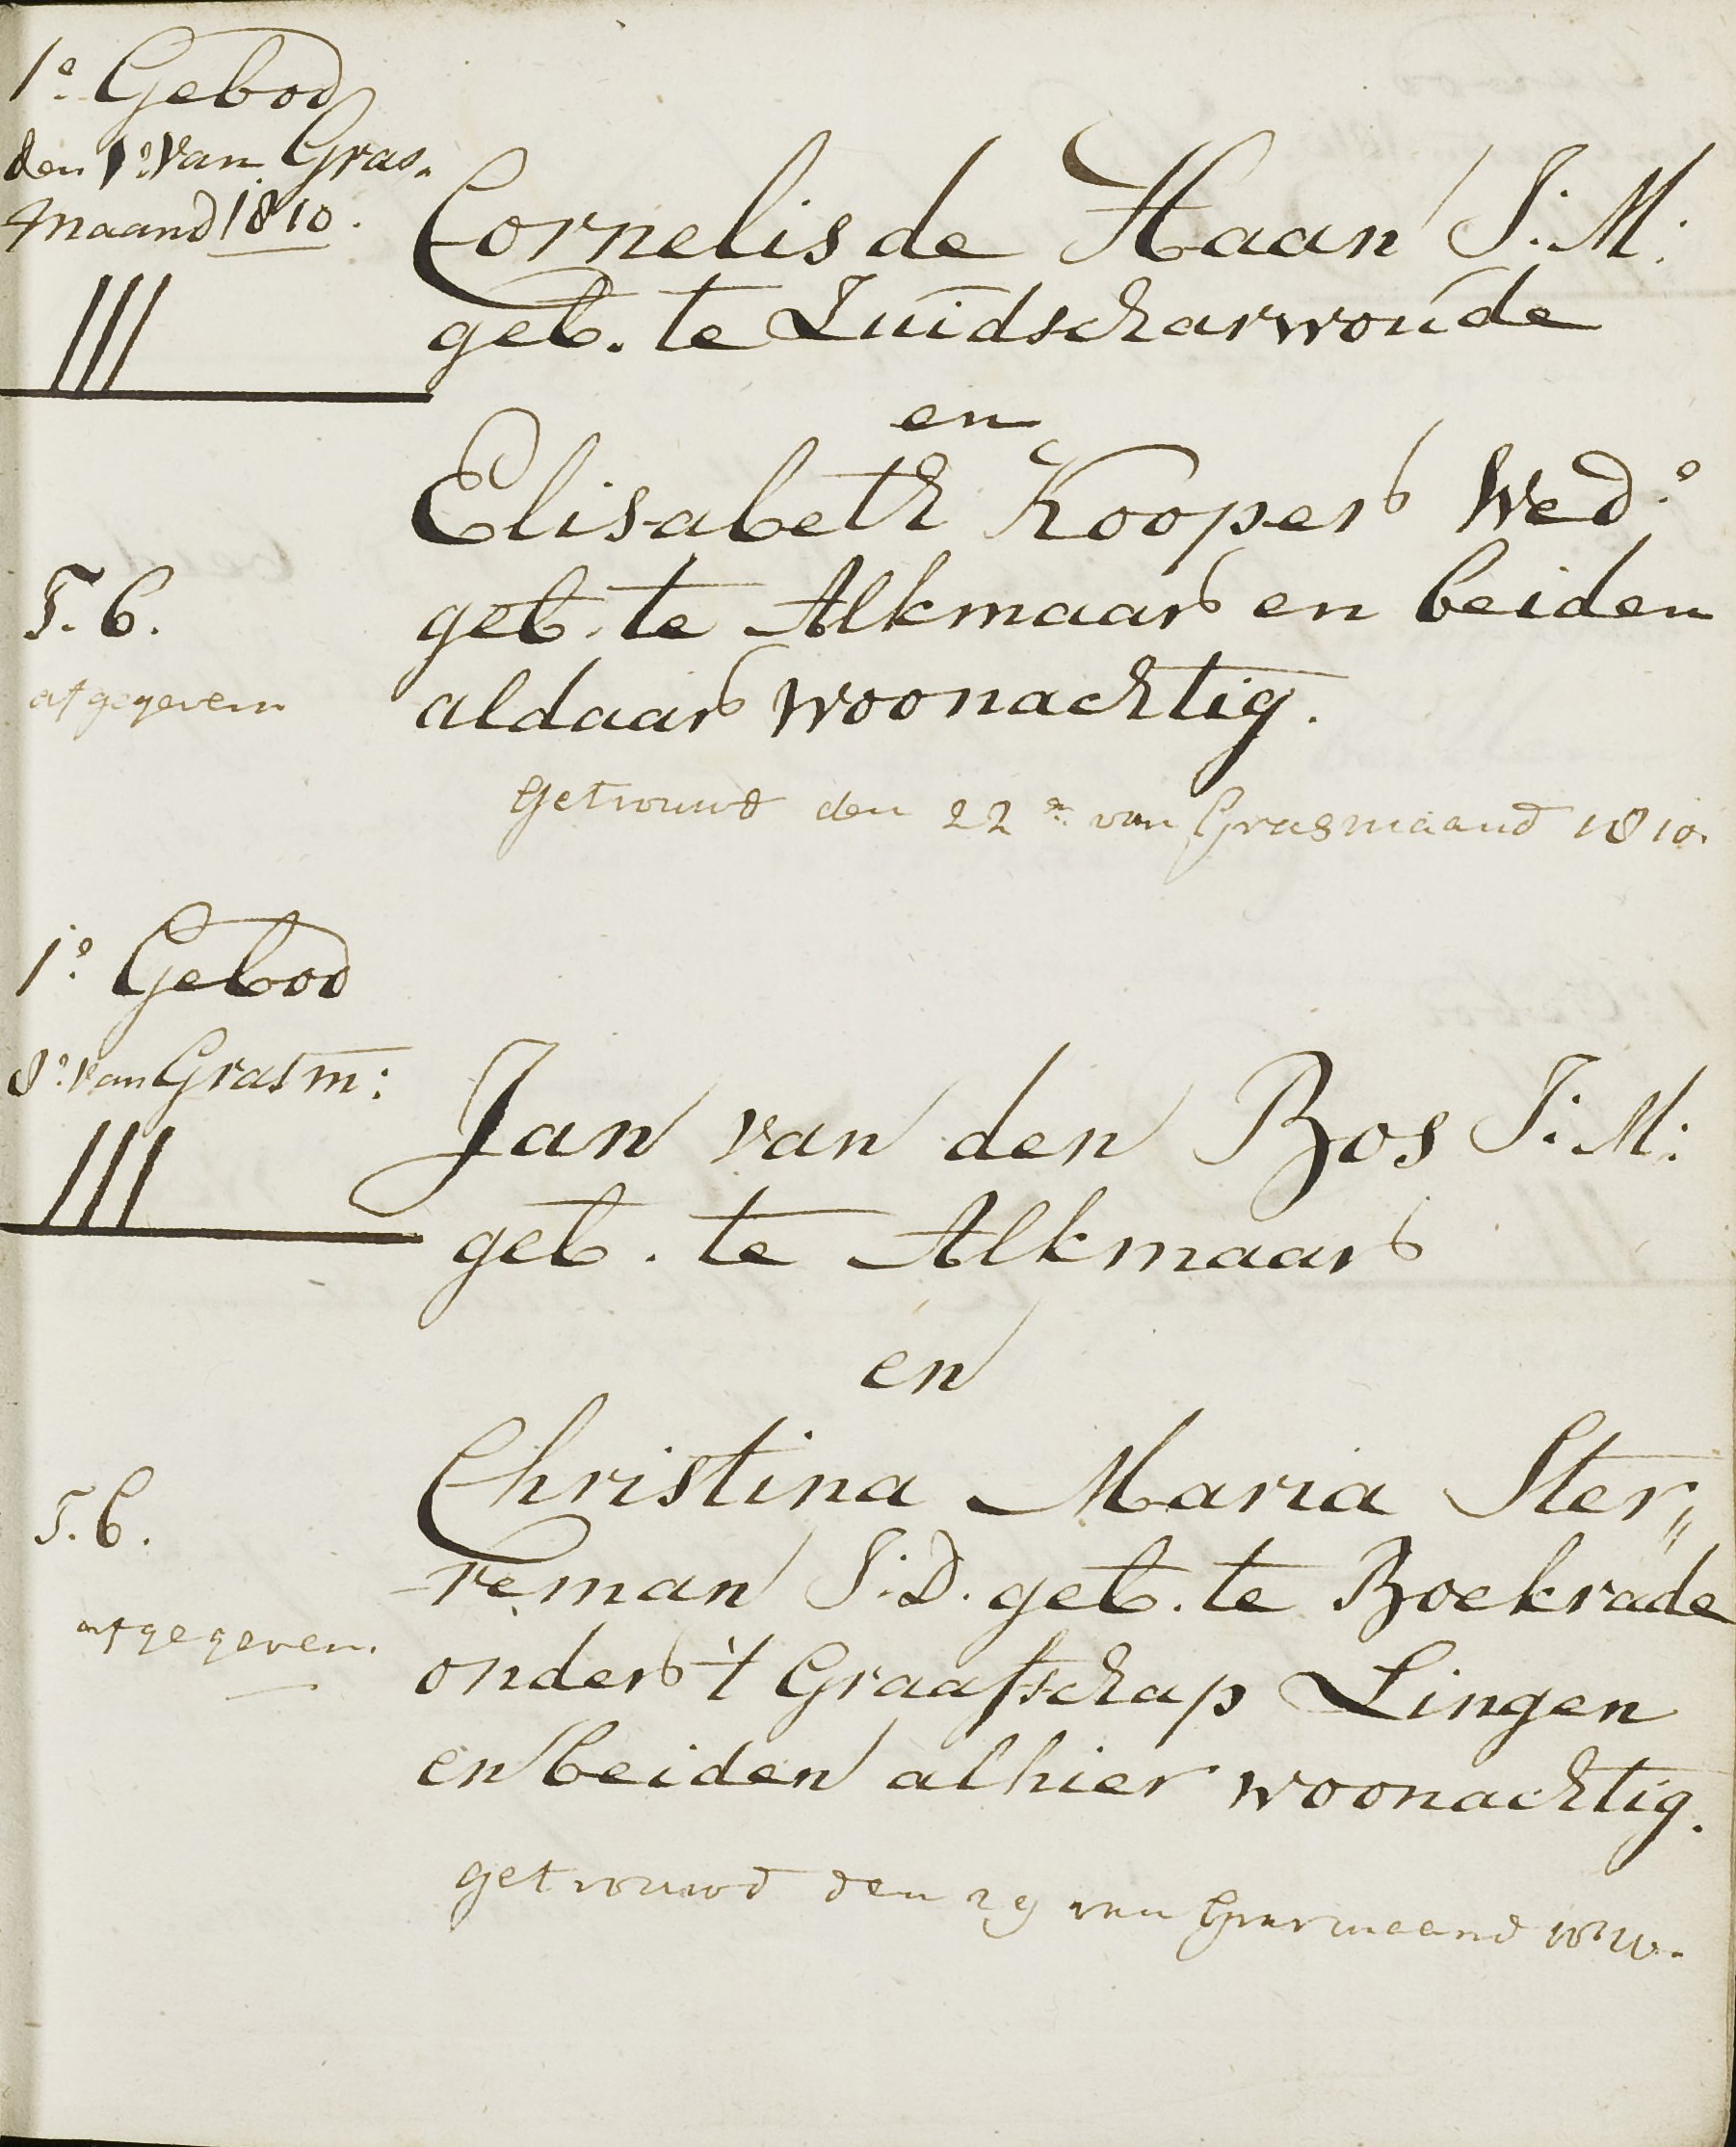 1e. Gebod
den 1e. van Gras-
maand 1810.
III
Cornelis de Haan J: M:
geb. te Zuidscharwoude
en
Elisabeth Kooper Wed:e
geb. te Alkmaar en beiden
aldaar woonachtig.
T. 6.
afgegeven
getrouwd den 22e. van Grasmaand 1810.
1e. Gebod
8e. van Grasm:
III
Jan van den Bos J: M:
geb. te Alkmaar
en
Christina Maria Ster„
reman J: D. geb. te Boekrade
onder 't Graafschap Lingen
en beiden alhier woonachtig.
T. 6.
afgegeven.
getrouwd den 29 van Grasmaand 1810.